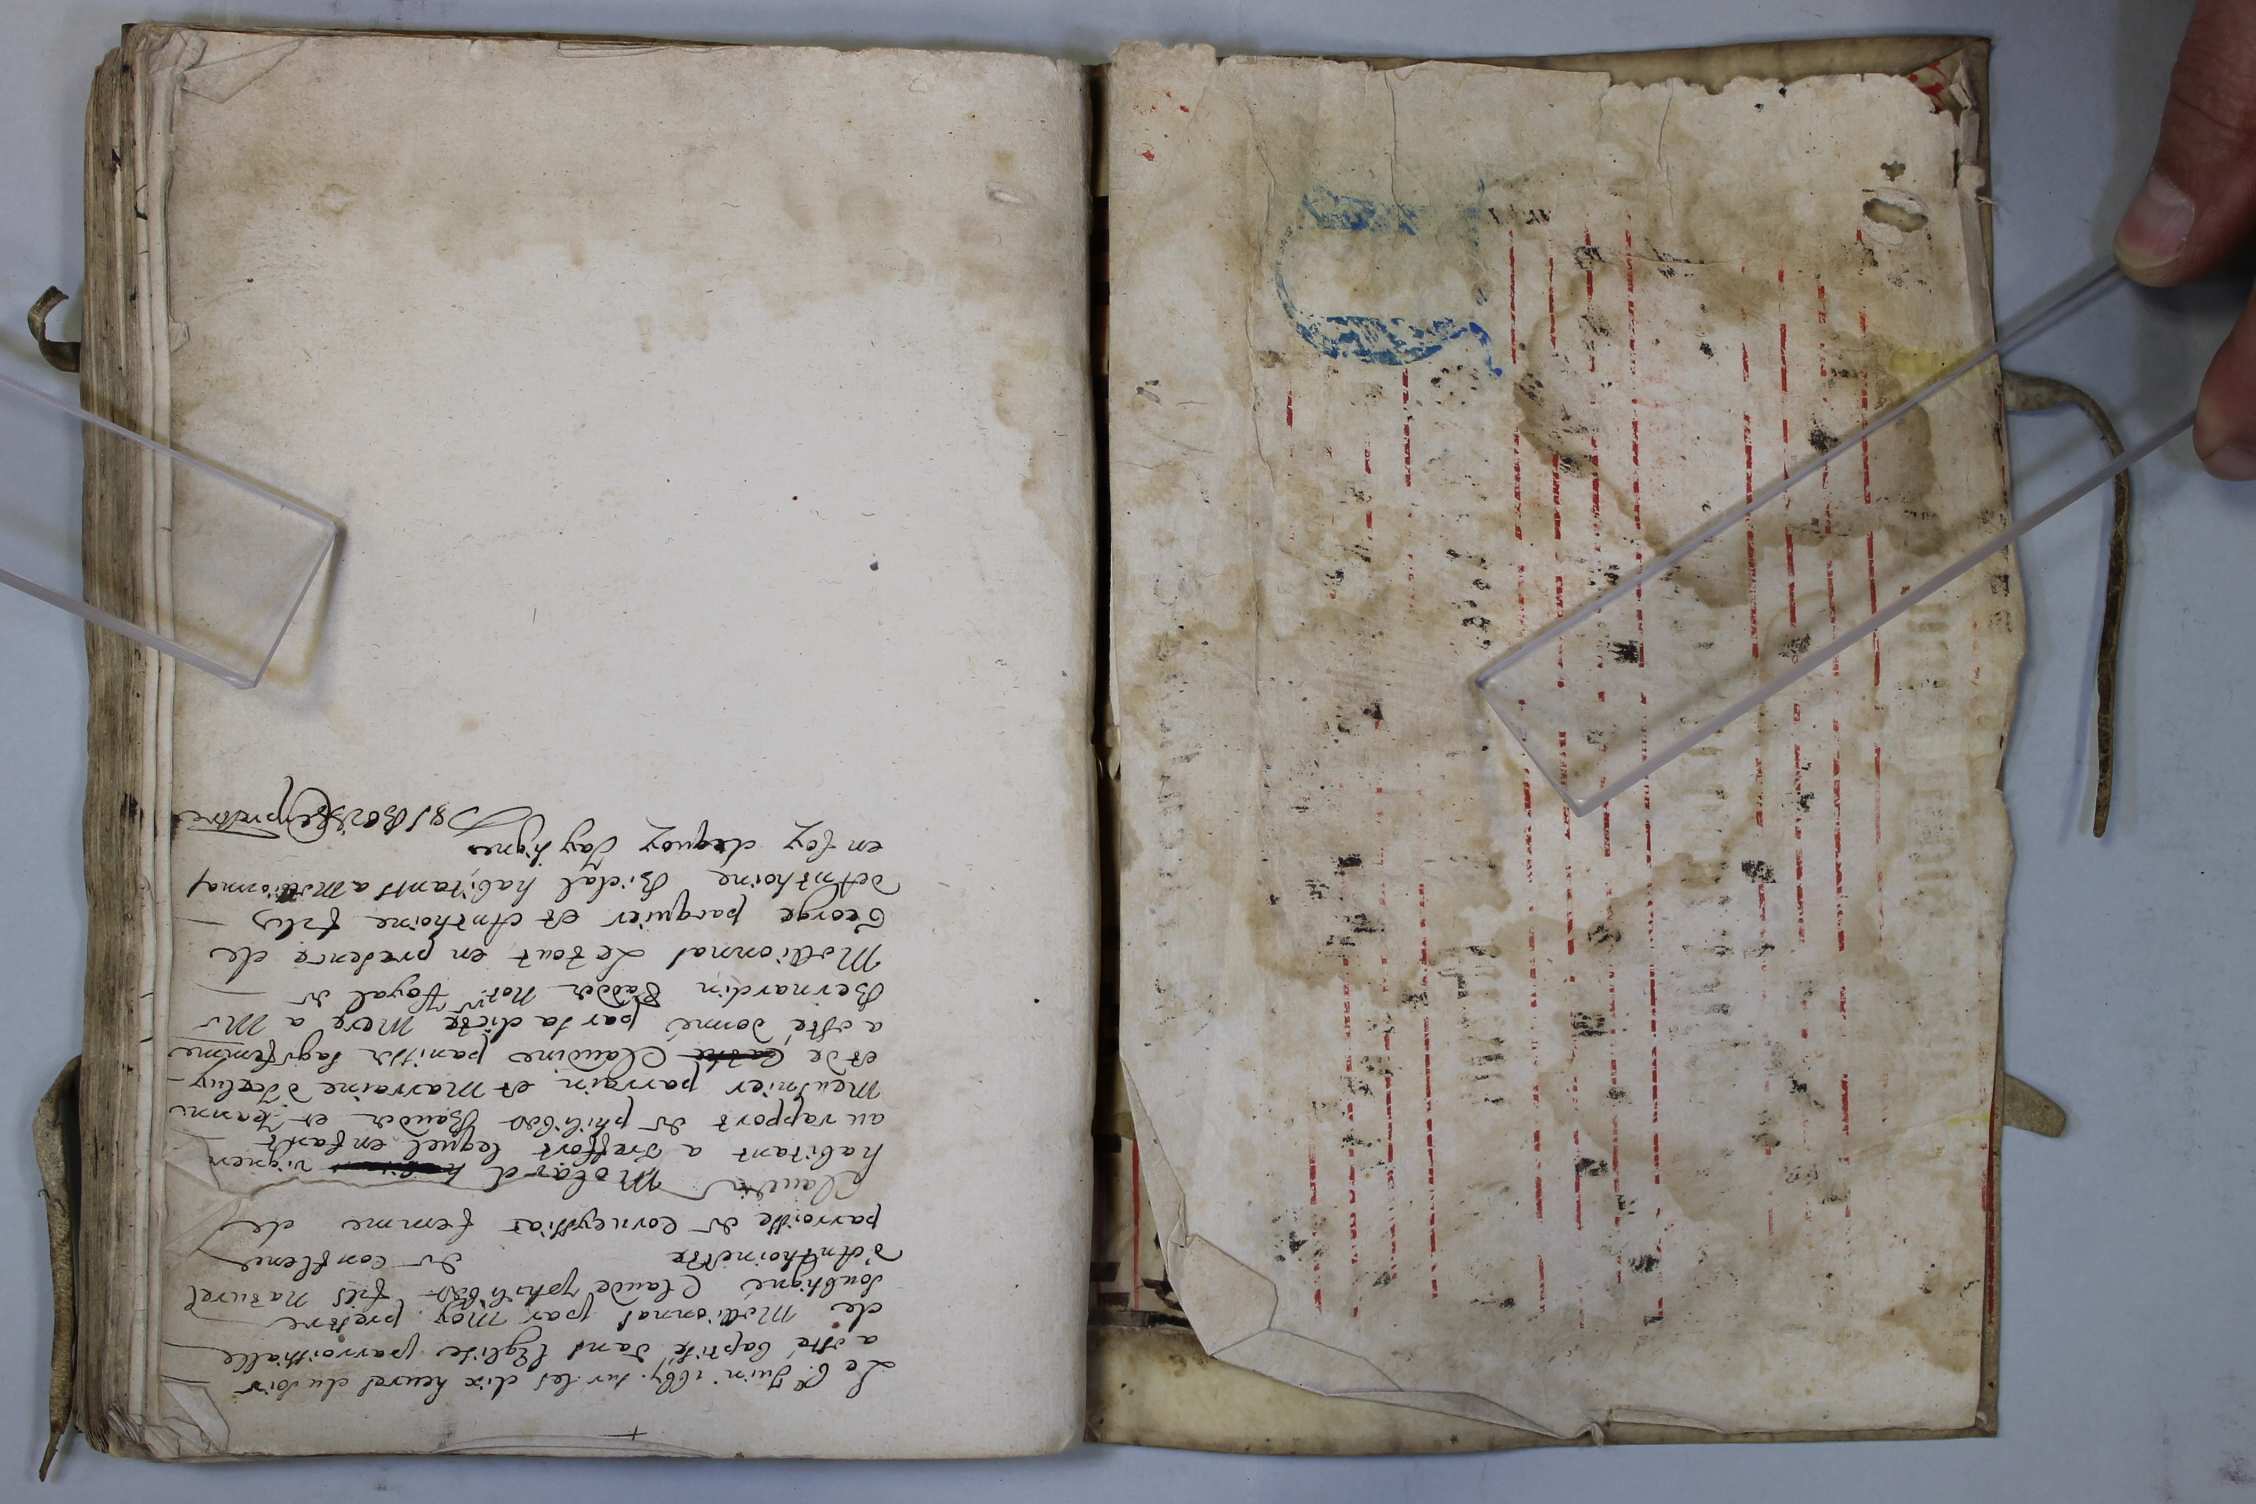 Le 6e Juin 1667. sur les dix heures du soir
a esté baptisé dans l'Eglise parroithialle
de Mottionnas par moy prestre
soubsigné Claude philibert fils naturel
d'Anthoinette de Conflens
parroisse de Corveyssiat femme de
Claude Molard vigneron
habitant a Treffort lequel enfant
au rapport de philibert Baudet et Jeanne
Meusnier parrain et Marraine d'Iceluy
et de Claudine panitier sagefemme
a esté donné par sa dicte Mere a Mr
Bernardin not. Royal de
Mottionnas Le tout en presence de
George pasquier et Anthoine fils
d'Anthoine Bidal habitants a Mottionnas
en foy dequoy Jay signé
prebstre